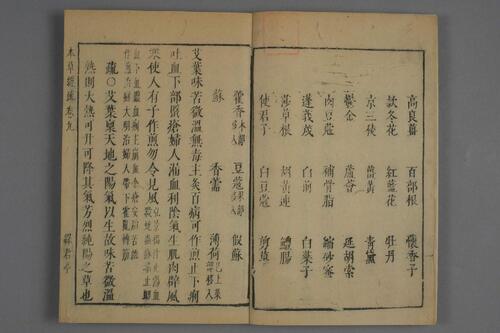 高良薑 百部根 懷香子
款冬花 紅藍花 牡丹
京三稜 薑黃 青黛
鬱金 蘆薈 延胡索
肉豆蔻 補骨脂 縮砂蜜
蓬莪茂 白前 白藥子
莎草根 胡黃連 鱧腸
使君子 白豆蔻 剪草
藿香 豆蔻 假蘇
蘇 香薷 薄荷
艾葉味苦微溫無毒主灸百病可作煎止下痢
吐血下部䘌瘡婦人漏血利陰氣生肌肉辟風
寒使人有子作煎勿令見風
疏○艾葉稟天地之陽氣以生故味苦微溫
熱則大熱可升可降其氣芳烈純陽之草也
本草經疏卷九